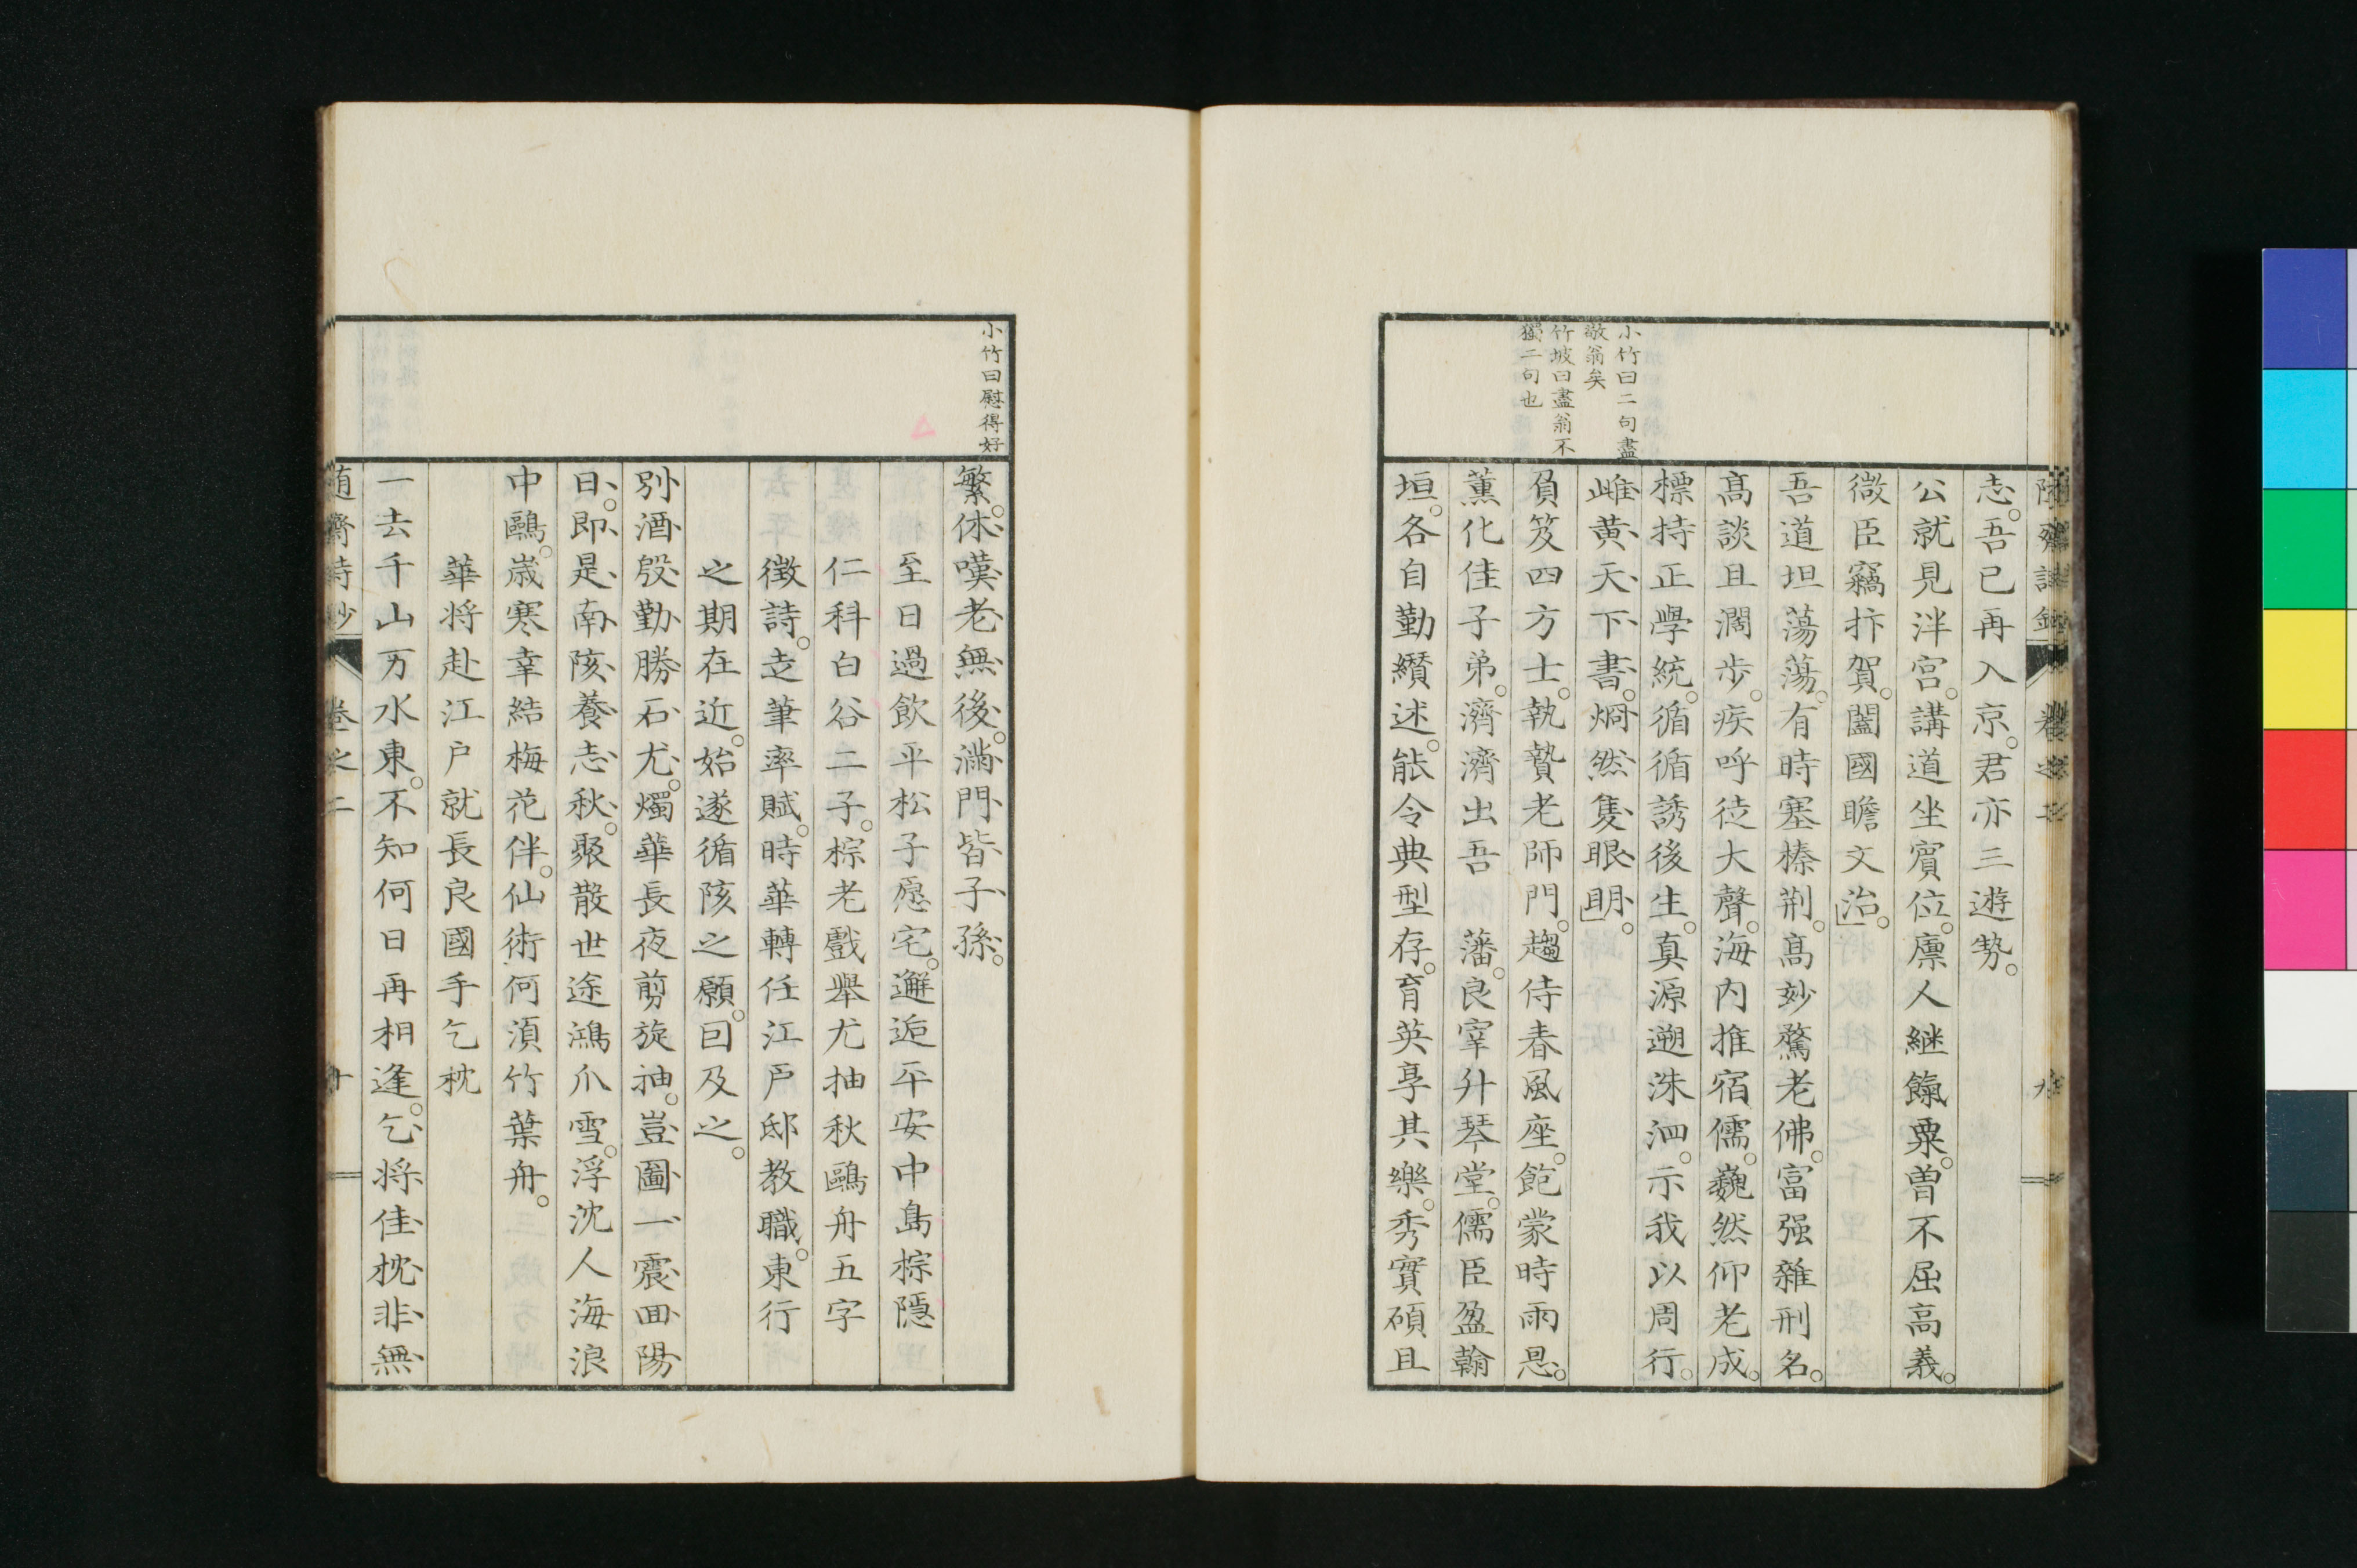 志。吾已再入京。君亦三遊勢。
公就見泮宮。講道坐賓位。廪人継餼粟。曽不屈高義。
微臣竊抃賀。闔國瞻文治。」
吾道坦蕩蕩。有時塞榛荆。髙妙鶩老佛。冨强雜刑名。
髙談且濶步。疾呼徒大聲。海内推宿儒。巍然仰老成。
標持正學統。循循誘後生。真源遡洙泗。示我以周行。
雌黄天下書。烱然隻眼明」。
負笈四方士。執贄老師門。趨侍春風座。飽蒙時雨恩。
薫化佳子弟。濟濟出吾　藩。良宰升琴堂。儒臣盈翰
垣。各自勤纉述。能令典型存。育英享其樂。秀實碩且
小竹曰二句盡
敬翁矣
竹坡曰盡翁不
獨二句也
小竹曰慰得好
繁。休嘆老無後。滿門皆子孫。
至日過飲平松子愿宅。邂逅平安中島棕隱
仁科白谷二子。棕老戲舉尤抽秋鷗舟五字
徴詩。走筆率賦。時華轉任江戸邸教職。東行
之期在近。始遂循陔之願。囘及之。
別酒殷勤勝石尤。燭華長夜剪旋抽。豈圖一震囬陽
日。即是南陔養志秋。聚散世途鴻爪雪。浮沈人海浪
中鷗。歳寒幸結梅花伴。仙術何湏竹葉舟。
華将赴江戸就長良國手乞枕
一去千山万水東。不知何日再相逢。乞将佳枕非無
随齋詩鈔　卷之二　十